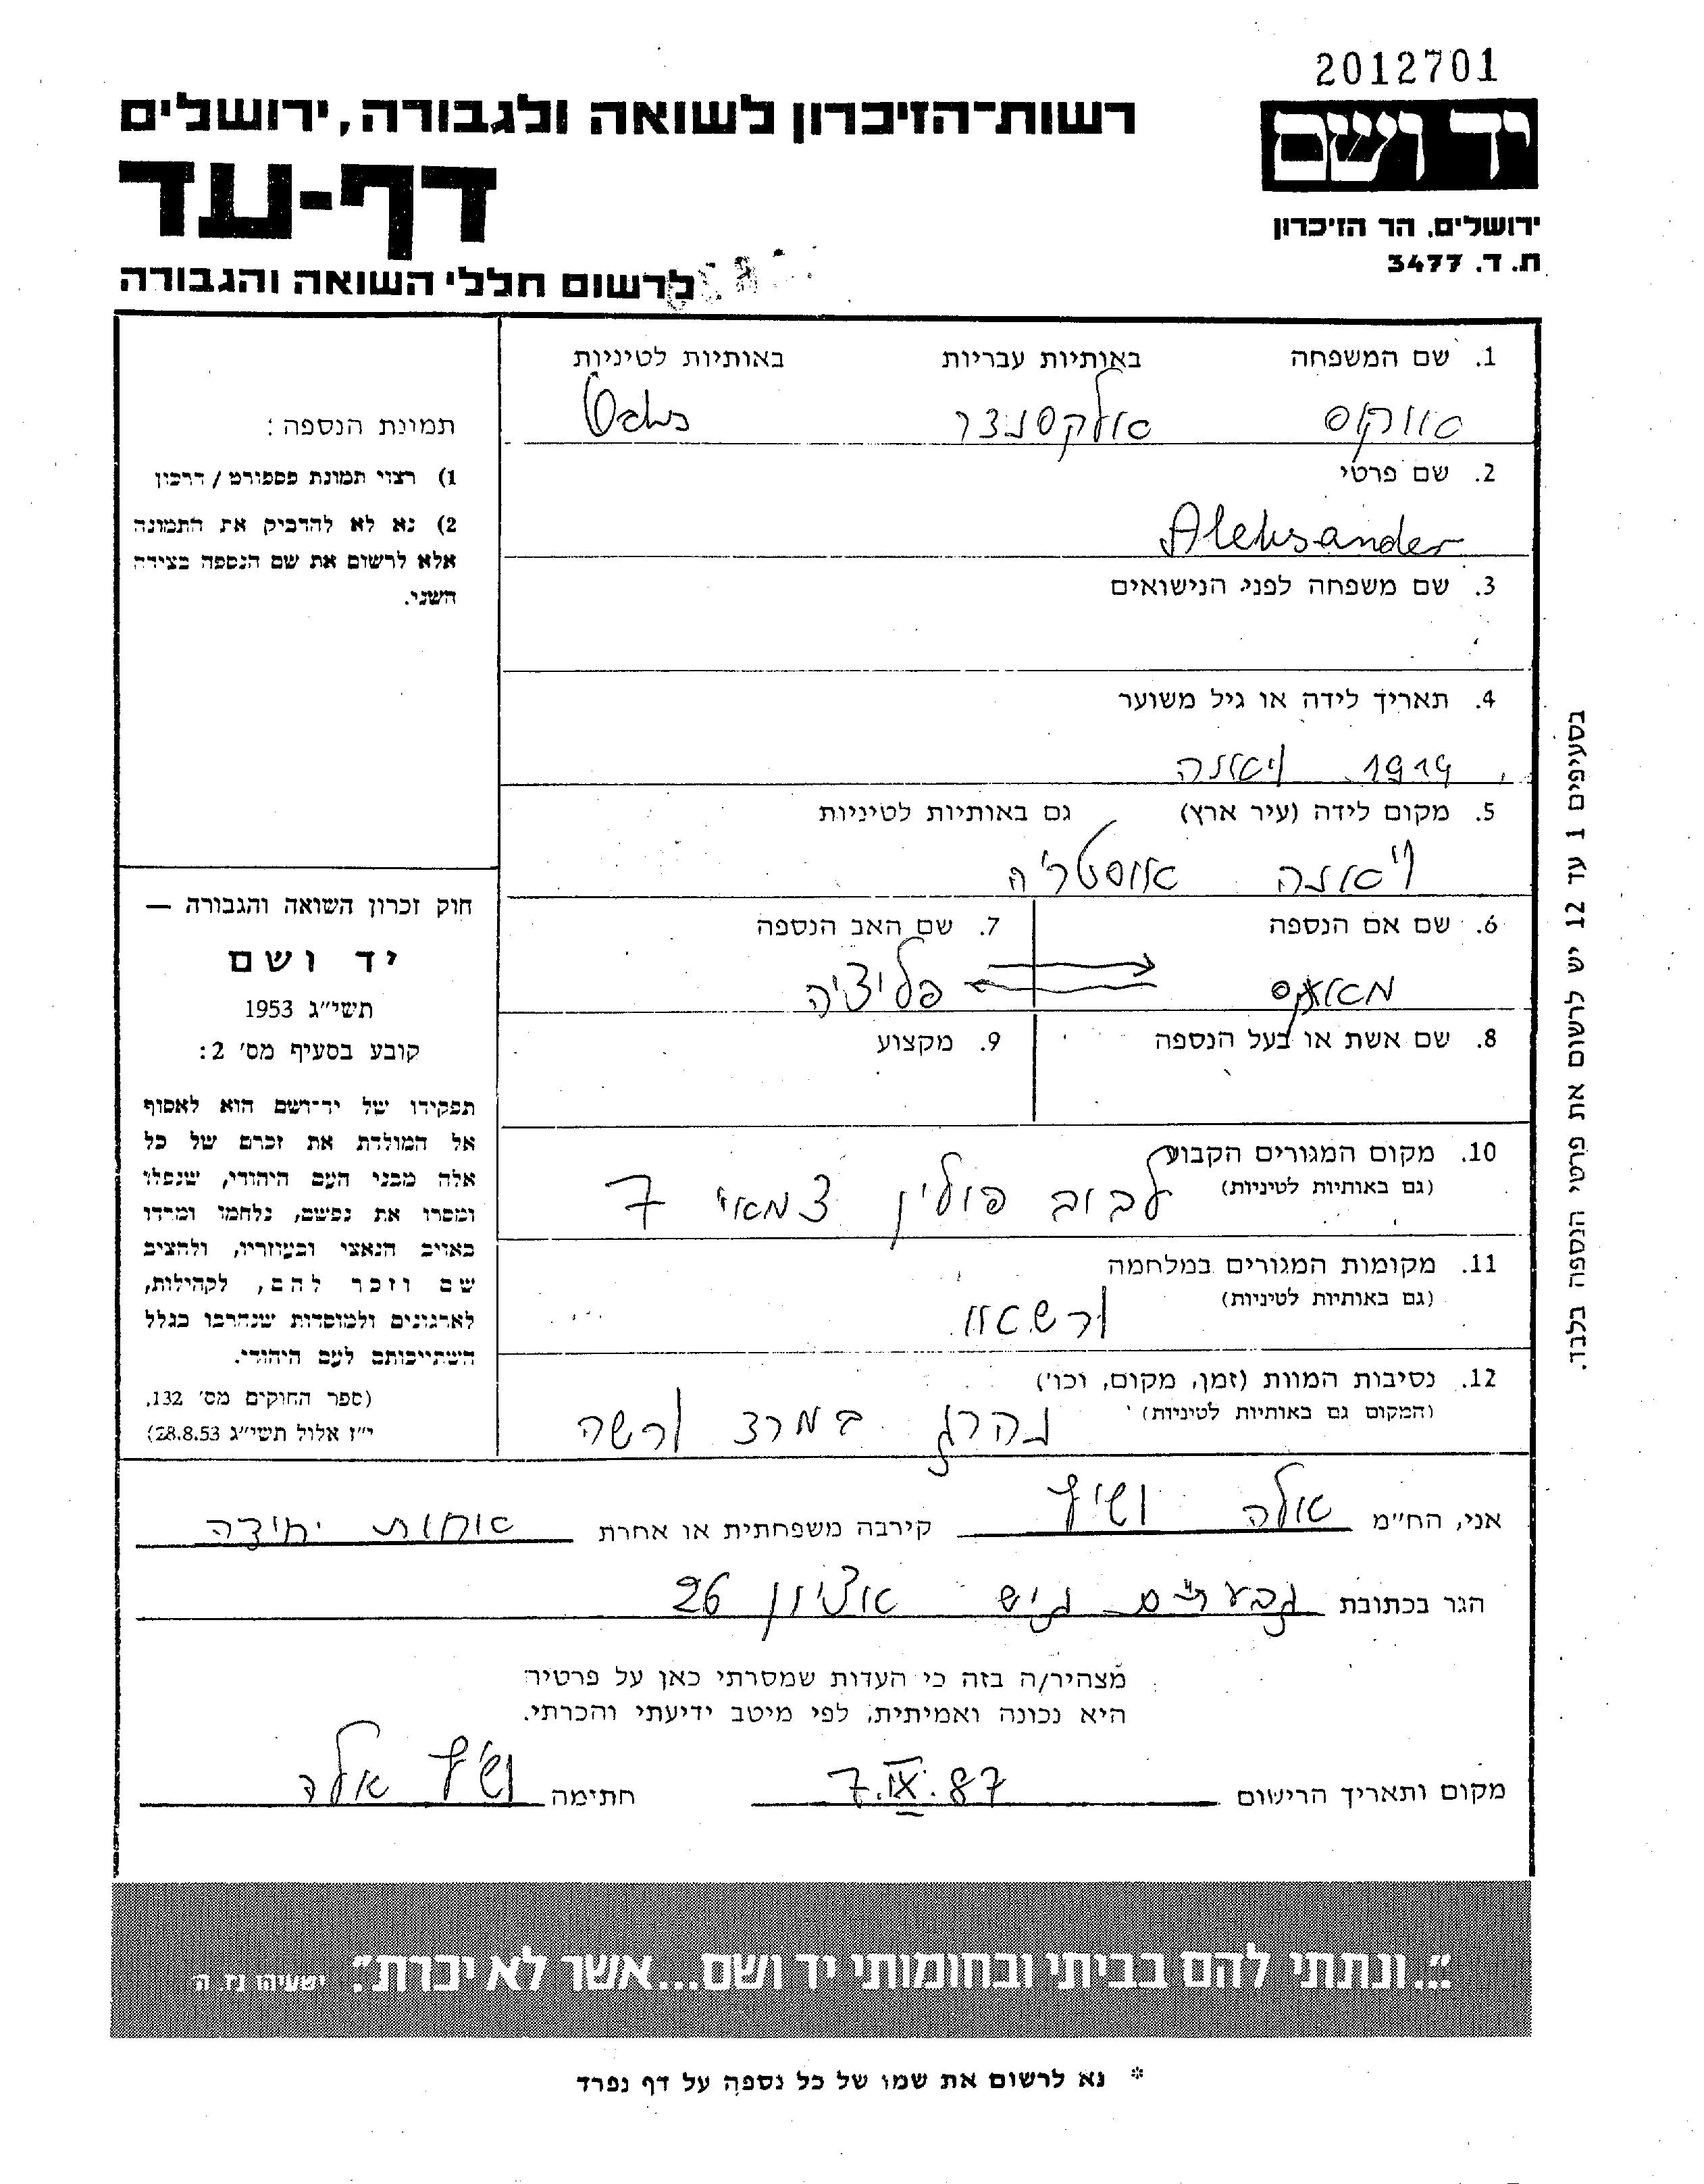 2012701
יד ושם
ירושלים, הר הזיכרון
ת. ד. 3477
רשות־הזיכרון לשואה ולגבורה, ירושלים
דף-עד
לרשום חללי השואה והגבורה
1. שם המשפחה באותיות עבריות באותיות לטיניות
אווקס אלקסנדר
2. שם פרטי
Aleksander
3. שם משפחה לפני הנישואים
4. תאריך לידה או גיל משוער
1919 ויאנה
5. מקום לידה (עיר ארץ) גם באותיות לטיניות
ויאנה אוסטריה
6. שם אם הנספה 7. שם האב הנספה
פליציה
8. שם אשת או בעל הנספה 9. מקצוע
10. מקום המגורים הקבוע
(גם באותיות לטיניות)
לבוב פולין 3 מאי 7
11. מקומות המגורים במלחמה
(גם באותיות לטיניות)
ורשאוו
12. נסיבות המוות (זמן, מקום, וכו')
(המקום גם באותיות לטיניות)
נהרג במרצ ורשה
תמונת הנספה:
1) רצוי תמונת פספורט / דרכון
2) נא לא להדביק את התמונה
אלא לרשום את שם הנספה בצידה
השני.
חוק זכרון השואה והגבורה —
יד ושם
תשי״ג 1953
קובע בסעיף מס' 2:
תפקידו של יד־ושם הוא לאסוף
אל המולדת את זכרם של כל
אלה מבני העם היהודי, שנפלו
ומסרו את נפשם, נלחמו ומרדו
באויב הנאצי ובעוזריו, ולהציב
שם וזכר להם, לקהילות,
לארגונים ולמוסדות שנחרבו בגלל
השתייכותם לעם היהודי.
(ספר החוקים מס' 132,
י״ז אלול תשי״ג 28.8.53)
בסעיפים 1 עד 12 יש לרשום את פרטי הנספה בלבד.
אני, הח״מ אלה ושיץ קירבה משפחתית או אחרת אחות יחידה
הגר בכתובת גבעתים גוש עציון 26
מצהיר/ה בזה כי העדות שמסרתי כאן על פרטיה
היא נכונה ואמיתית, לפי מיטב ידיעתי והכרתי.
מקום ותאריך הרישום 7.IX.87 חתימה ושיץ אלה
״...ונתתי להם בביתי ובחומותי יד ושם...אשר לא יכרת״. ישעיהו נו. ה
* נא לרשום את שמו של כל נספה על דף נפרד